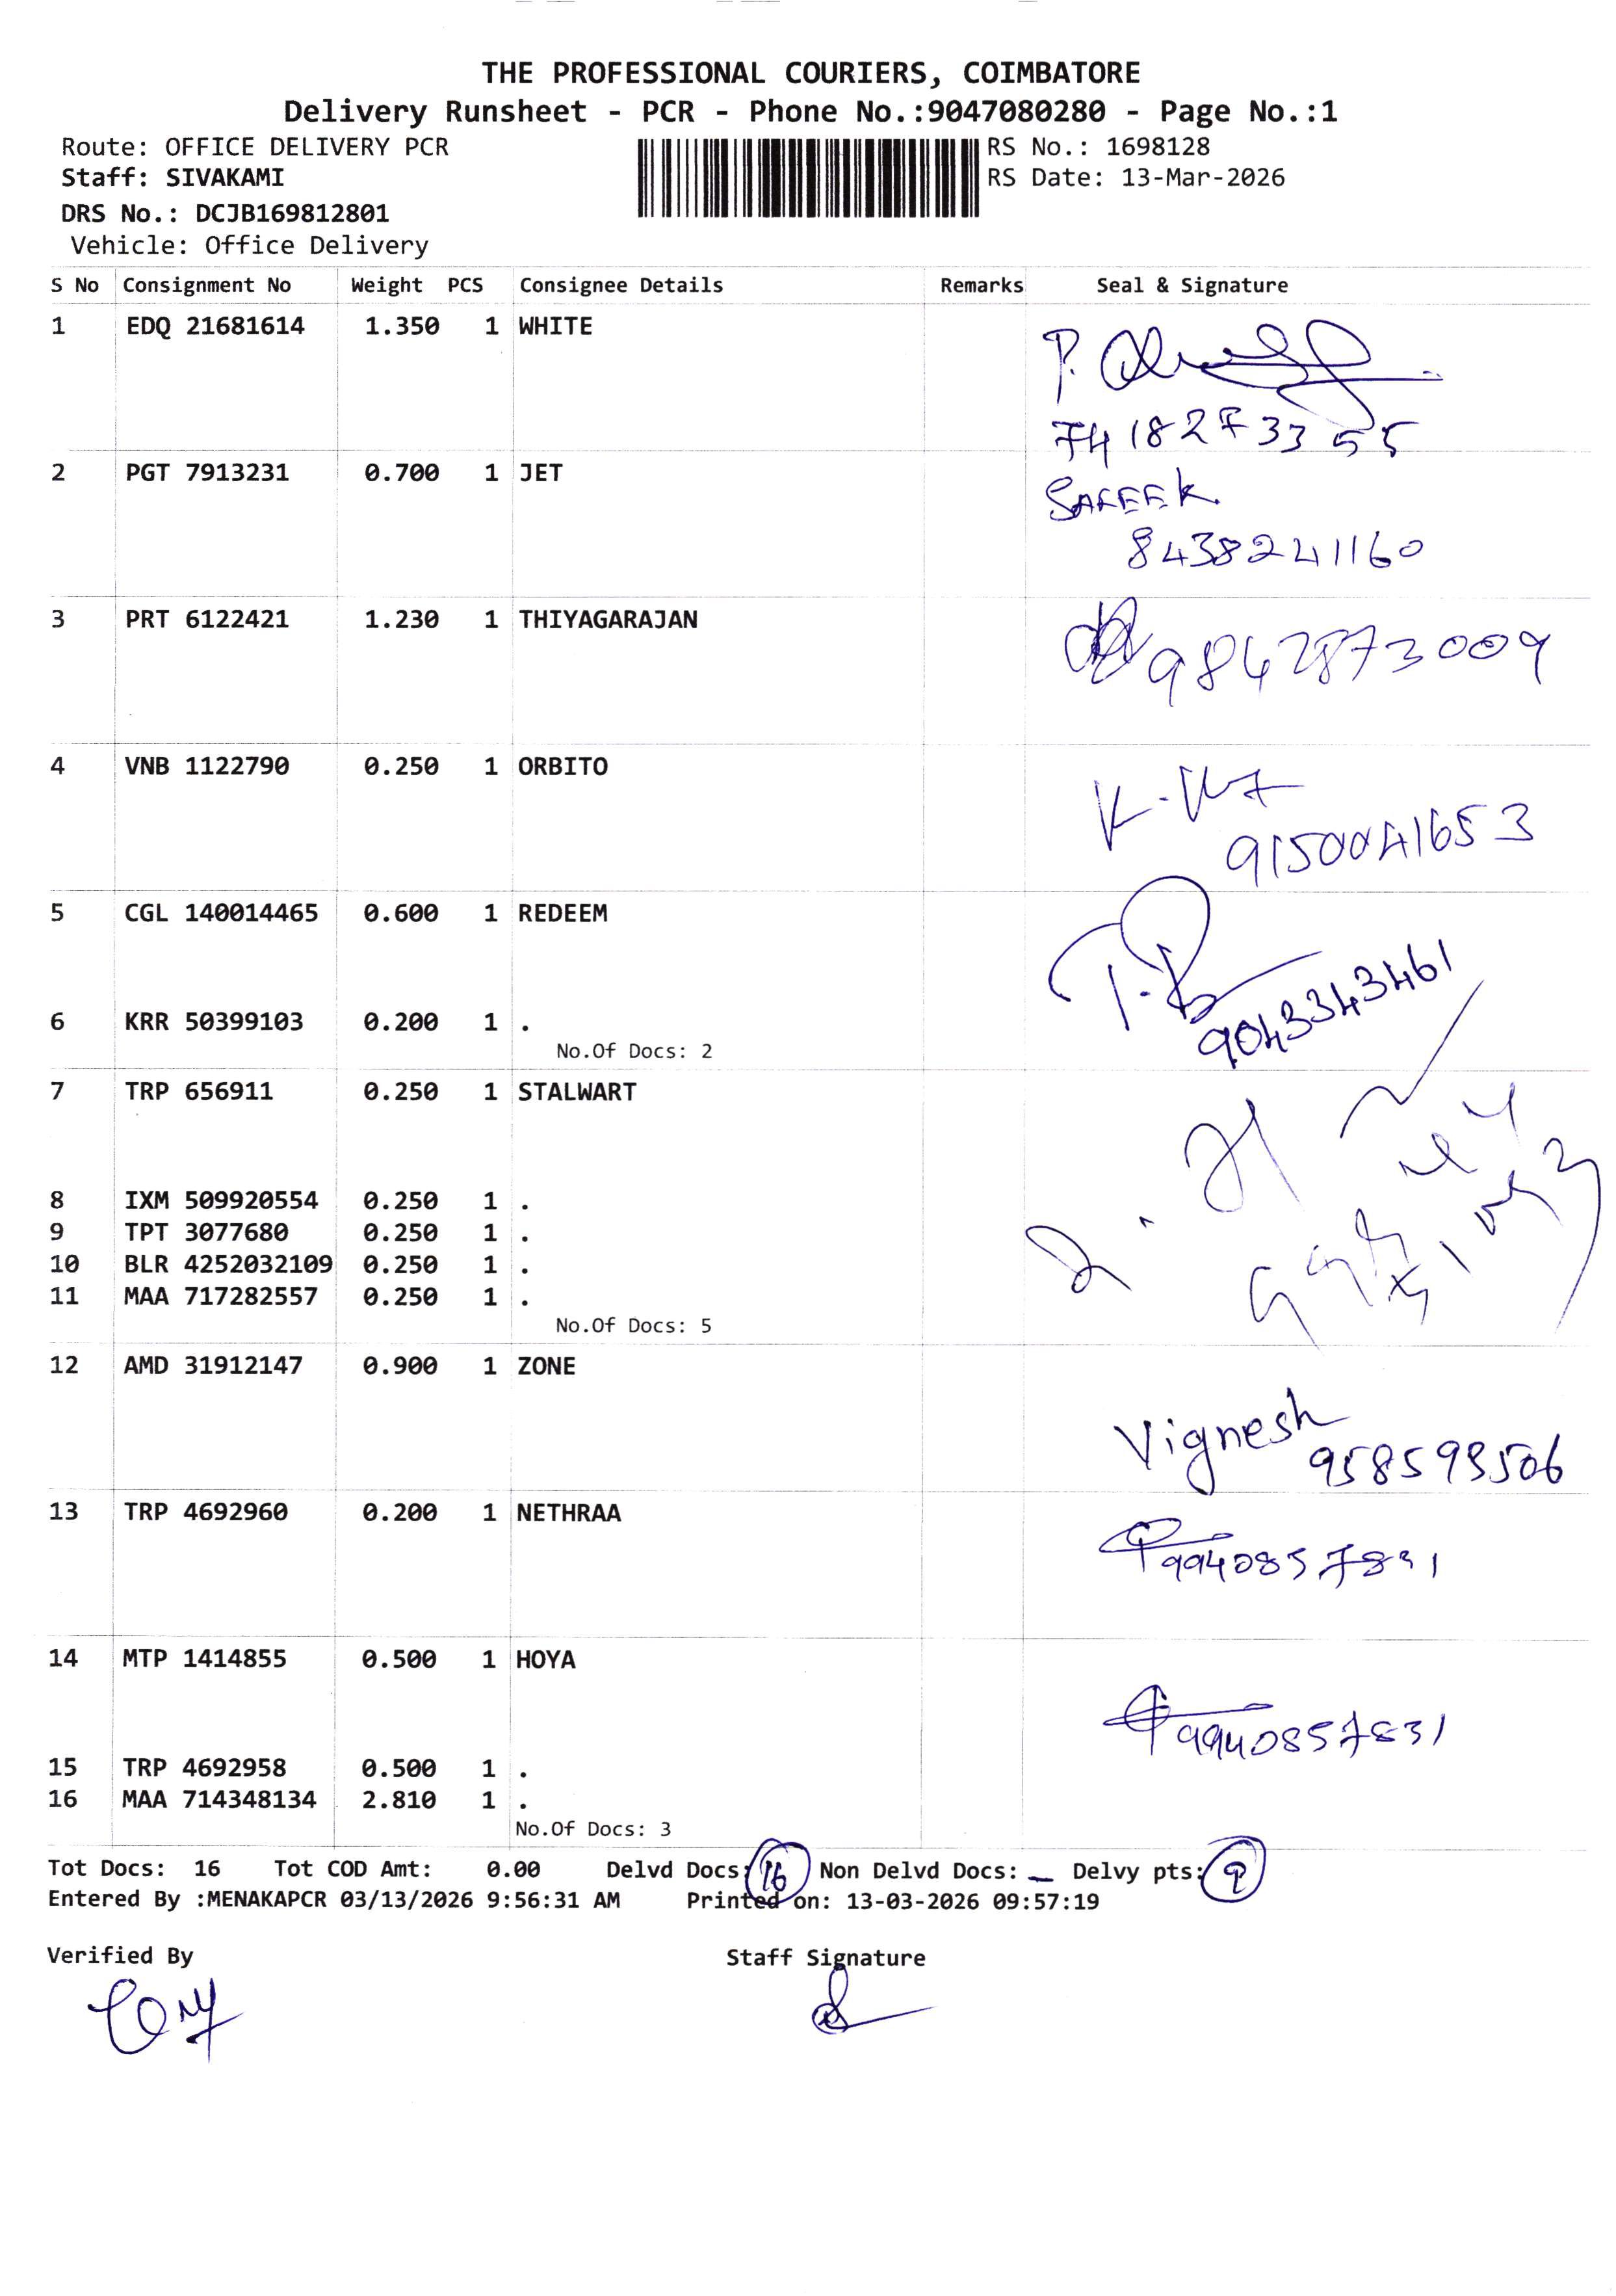 THE PROFESSIONAL COURIERS, COIMBATORE
Delivery Runsheet - PCR - Phone No.:9047080280 - Page No.:1
Route: OFFICE DELIVERY PCR
RS No.: 1698128
Staff: SIVAKAMI
RS Date: 13-Mar-2026
DRS No.: DCJB169812801
Vehicle: Office Delivery
S No Consignment No Weight PCS Consignee Details Remarks Seal & Signature
1 EDQ 21681614 1.350 1 WHITE
P.
7418273355
2 PGT 7913231 0.700 1 JET
SAFEEK.
8438241160
3 PRT 6122421 1.230 1 THIYAGARAJAN
9842873009
4 VNB 1122790 0.250 1 ORBITO
9150041653
5 CGL 140014465 0.600 1 REDEEM
9043343461
6 KRR 50399103 0.200 1 .
No.Of Docs: 2
7 TRP 656911 0.250 1 STALWART
8 IXM 509920554 0.250 1 .
9 TPT 3077680 0.250 1 .
10 BLR 4252032109 0.250 1 .
11 MAA 717282557 0.250 1 .
No.Of Docs: 5
12 AMD 31912147 0.900 1 ZONE
Vignesh
958593506
13 TRP 4692960 0.200 1 NETHRAA
9940857831
14 MTP 1414855 0.500 1 HOYA
9940857831
15 TRP 4692958 0.500 1 .
16 MAA 714348134 2.810 1 .
No.Of Docs: 3
Tot Docs: 16 Tot COD Amt: 0.00 Delvd Docs: 16 Non Delvd Docs: — Delvy pts: 9
Entered By :MENAKAPCR 03/13/2026 9:56:31 AM Printed on: 13-03-2026 09:57:19
Verified By Staff Signature